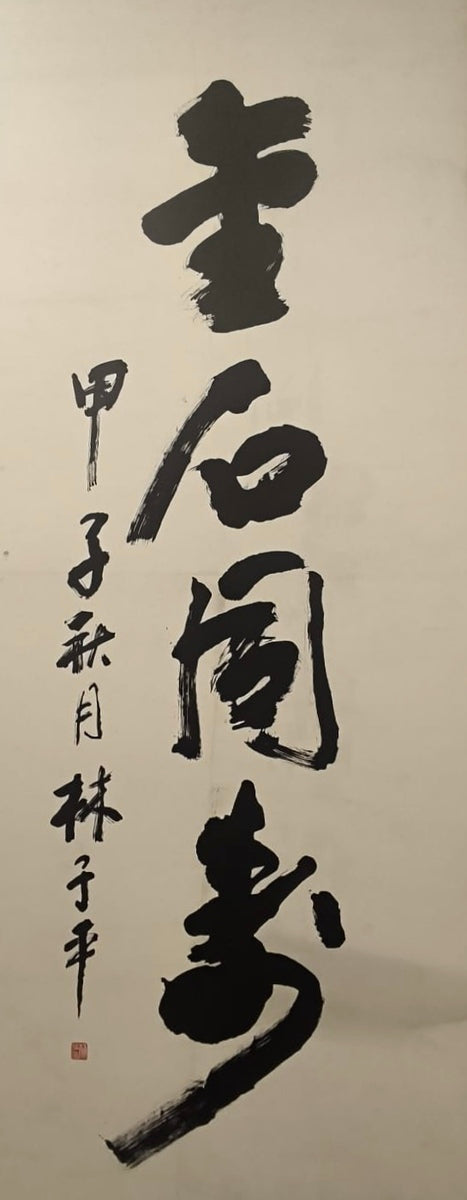 金石同寿
甲子秋月林于平